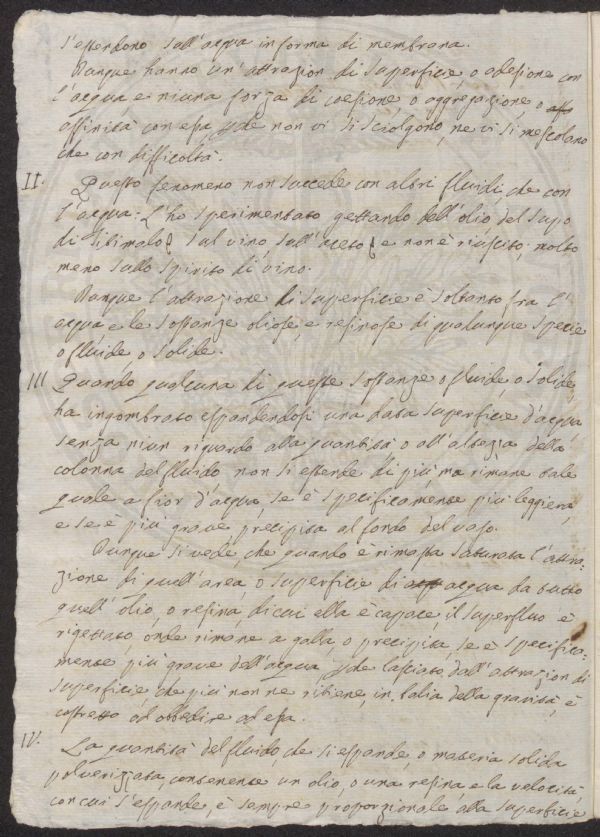 s'estendono sull'acqua in forma di membrana.
Dunque hanno un'attrazion di superficie, o adesione con
l'acqua, e niuna forza di coesione, o aggregazione, o
affinità con essa, pde non vi si sciolgono, ne vi si mescolano
che con difficoltà.
II. Questo fenomeno non succede con altri fluidi, che con
l'acqua: L'ho sperimentato gettando dell'olio, del sugo
di Titimalo sul vino, sull'aceto, e non è riuscito; molto
meno sullo spirito di vino.
Dunque l'attrazione di superficie è soltanto fra l'
acqua e le sostanze oliose, e resinose di qualunque specie
o fluide o solide.
III Quando qualcuna di queste sostanze o fluide, o solide,
ha ingombrato espandendosi una data superficie d'acqua,
senza niun riguardo alla quantità o all'altezza della
colonna del fluido non si estende di più, ma rimane tale
quale a fior d'acqua, se è specificamente più leggiera,
e se è più grave precipita al fondo del vaso.
Dunque si vede, che quando è rimasta saturata l'attra:
zione di quell'area, o superficie di acqua da tutto
quell'olio, o resina, di cui ella è capace il superfluo è
rigettato, onde rimane a galla, o precipita, se è specifica:
mente più grave dell'acqua, pde lasciato dall'attrazion di
superficie, che più non ne ritiene, in balia della gravità, è
costretto ad obbedire ad essa.
IV. La quantità del fluido, che si espande, o materia solida
polverizzata, contenente un olio, o una resina, e la velocità,
con cui s'espande, è sempre proporzionale alla superficie